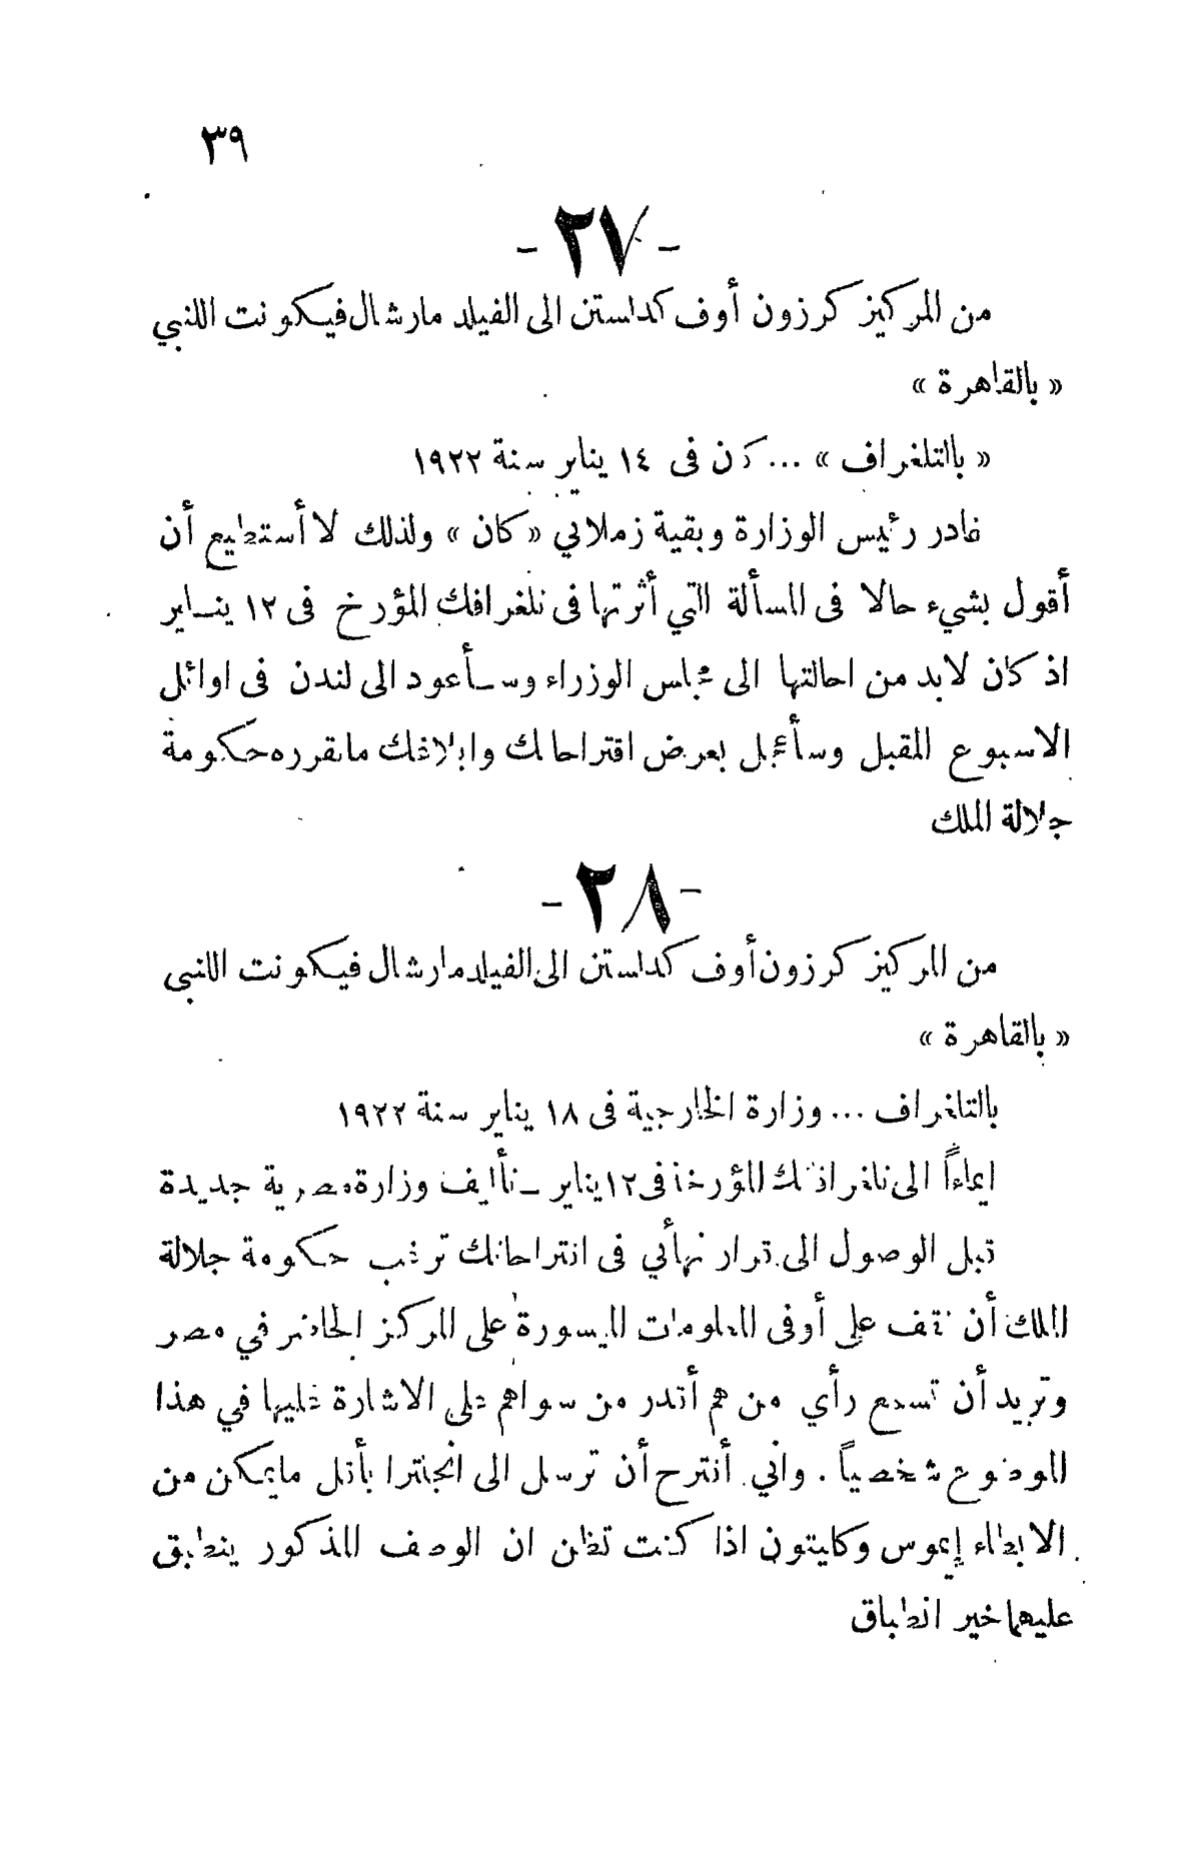 ٣٩
- ٢٧ -
من المركيز كرزون أوف كدلستن الى الفيلد مارشال فيكونت اللنبي
« بالقاهرة »
« بالتلغراف » ... كان فى ١٤ يناير سنة ١٩٢٢
غادر رئيس الوزارة وبقية زملائي « كان » ولذلك لا أستطيع أن
أقول بشيء حالا فى المسألة التي أثرتها فى تلغرافك المؤرخ فى ١٢ ينـاير
اذ كان لابد من احالتها الى مجلس الوزراء وسـأعود الى لندن فى اوائل
الاسبوع المقبل وسأعجل بعرض اقتراحاتك وابلاغك ماتقرره حكومة
جلالة الملك
- ٢٨ -
من المركيز كرزون أوف كدلستن الى الفيلد مارشال فيكونت اللنبى
« بالقاهرة »
بالتلغراف ... وزارة الخارجية فى ١٨ يناير سنة ١٩٢٢
ايماءاً الى تلغرافاتك المؤرخة فى ١٢ يناير ـ تأليف وزارة مصرية جديدة
قبل الوصول الى قرار نهائي فى اقتراحاتك ترغب حكومة جلالة
الملك أن تقف على أوفى المعلومات الميسورة على المركز الحاضر في مصر
وتريد أن تسمع رأي من هم أقدر من سواهم على الاشارة عليها في هذا
الموضوع شخصياً . واني أقترح أن ترسل الى انجلترا بأقل مايمكن من
الابطاء إيموس وكليتون اذا كنت تظن ان الوصف المذكور ينطبق
عليهما خير انطباق